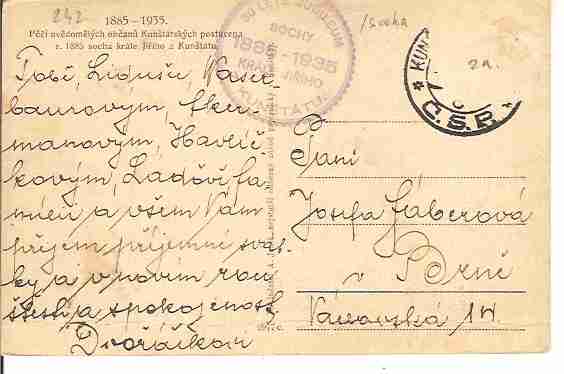 242
1885 - 1935.
Péčí uvědomělých občanů Kunštátských postavena
r. 1885 socha krále Jiřího z Kunštátu.
50 LETÉ JUBILEUM
SOCHY
1885-1935
KRÁLE JIŘÍHO
KUNŠTÁTU
/socha
2.-
KUN
Č.S.R.
Tobě, Liduši,
baurovým, Aker-
manovým, Havlíč-
kovým, Láďovi, fa-
milii a všem Vám
přejem příjemné svát-
ky a v novém roce
štěstí a spokojenost
Dvořáčkovi
Paní
Josefa Fáberová
v Brně
Václavská 14